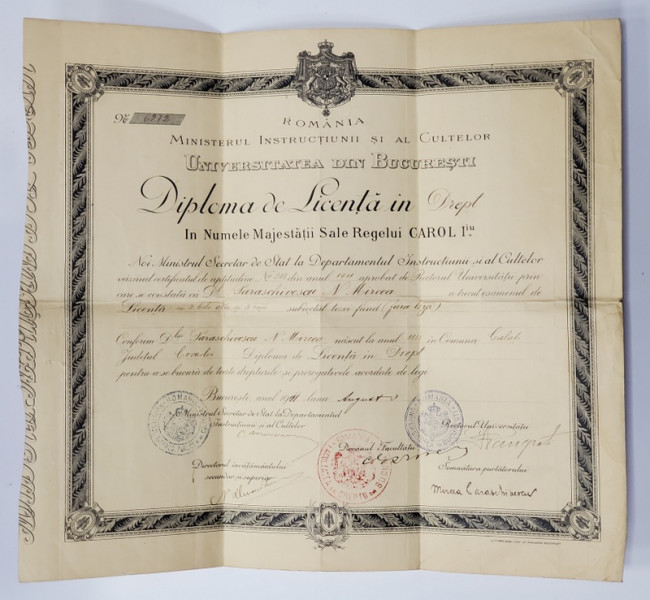 No 6212
ROMÂNIA
MINISTERUL INSTRUCŢIUNII ŞI AL CULTELOR
UNIVERSITATEA DIN BUCUREŞTI
Diploma de Licenţă in Drept
In Numele Majestăţii Sale Regelui CAROL I iu
Noi Ministrul Secretar de Stat la Departamentul Instrucţiunii şi al Cultelor
văzînd certificatul de aptitudine No din anul 1911 aprobat de Rectorul Universităţii prin
care se constată că Dl Paraschivescu N. Mircea a trecut examenul de
Licenţă subiectul tezei fiind (fara teză)
Conferim Dlui Paraschivescu N. Mircea născut la anul in Comuna Galaţi
Judeţul Covurlui Diploma de Licenţă in Drept
pentru a se bucura de toate drepturile şi prerogativele acordate de legi
Bucureşti anul 1911 luna August
Ministrul Secretar de Stat la Departamentul
Instrucţiunii şi al Cultelor
Rectorul Universităţii
Decanul Facultăţii
Directorul învăţământului
secundar şi superior
Semnătura purtătorului
Mircea Paraschivescu